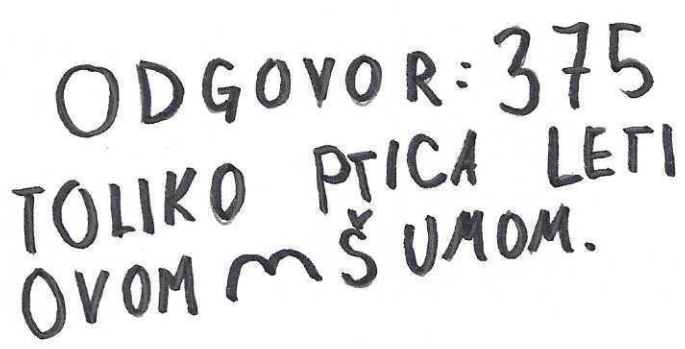 ODGOVOR: 375
TOLIKO PTICA LETI
OVOM ŠUMOM.